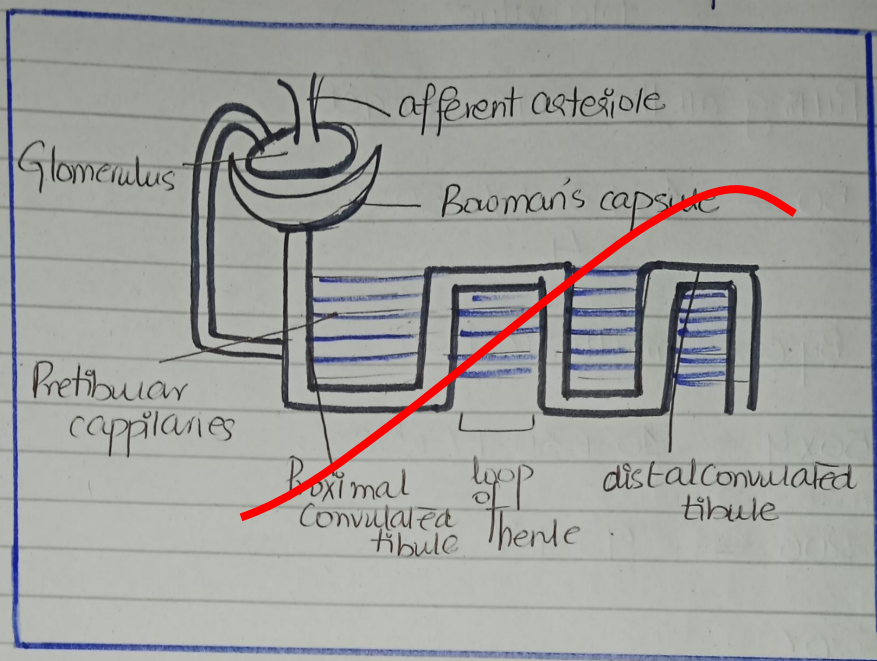 afferent arteriole
Glomerulus
Bowman's capsule
Pretibular
cappilaries
Proximal
Convulated
tibule
loop
of
Henle
distal convulated
tibule